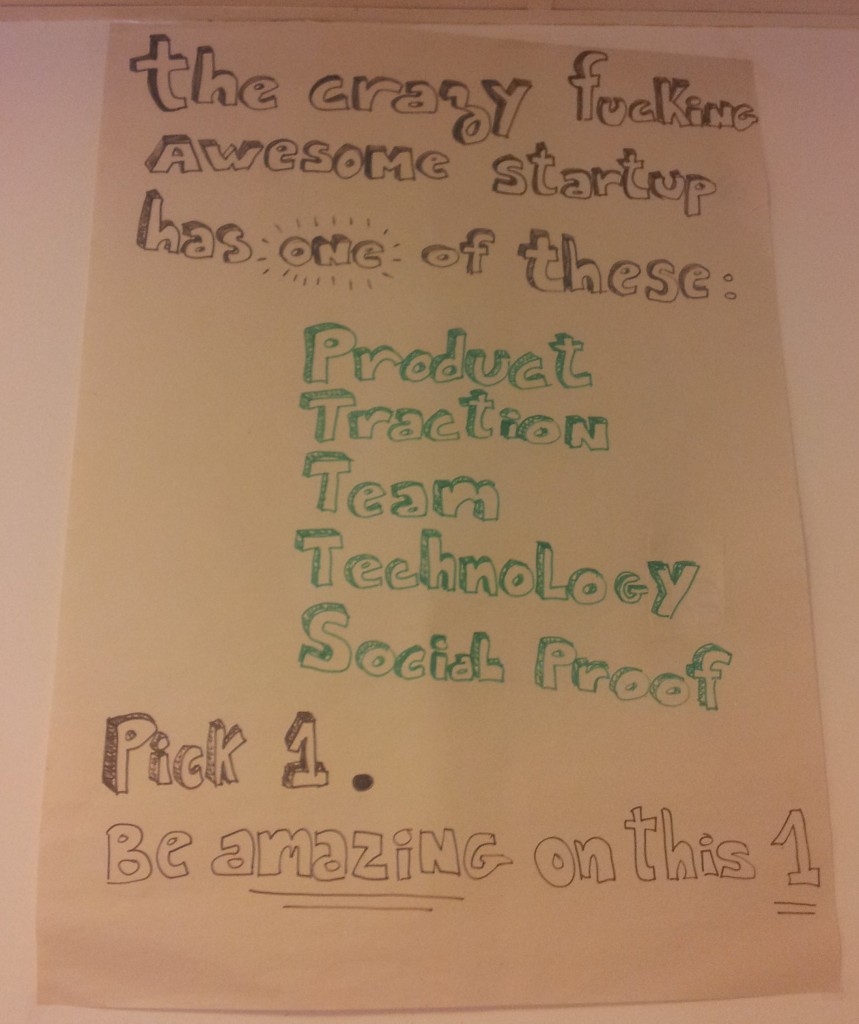 the crazy fucking
Awesome startup
has one of these:
Product
Traction
Team
Technology
Social Proof
Pick 1.
Be amazing on this 1